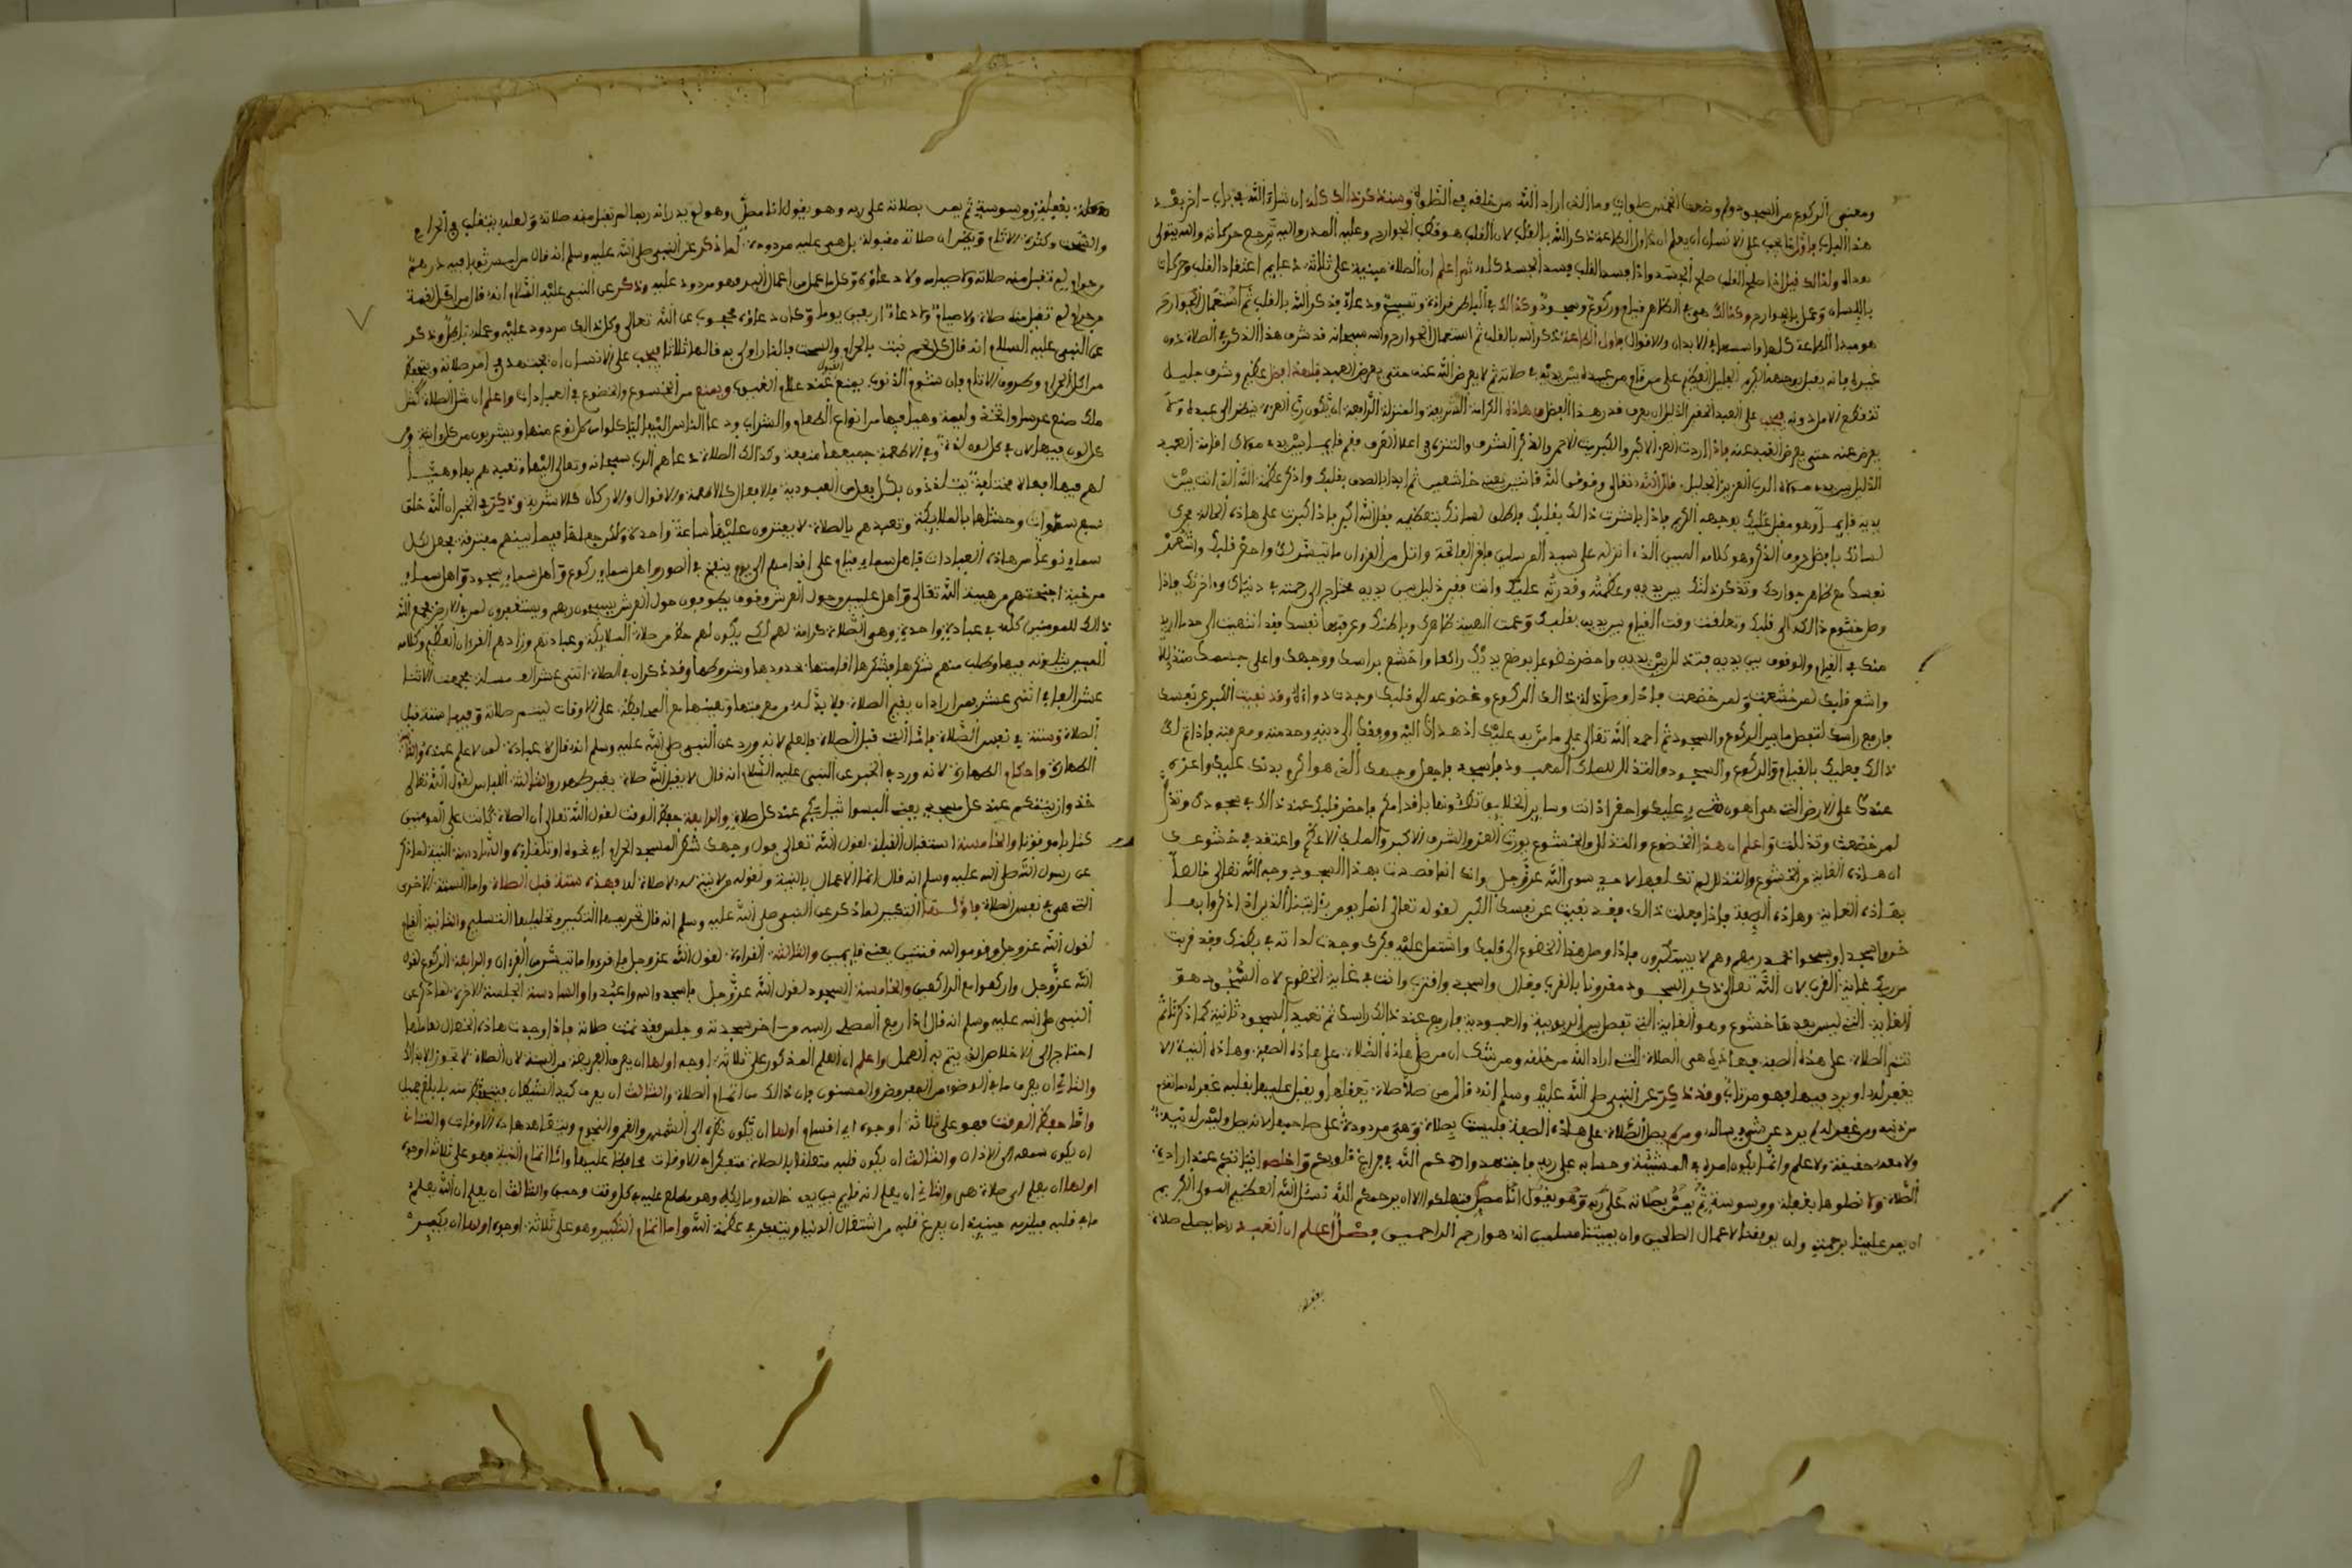 ومعنى الركوع من السجود ولم وضعت الخمس صلوات وما الذي اراد الله من خلقه في الصلوة وسنذكر ذالك كله ان شاء الله في باب اخر بعد
هذا الباب فاول ما يجب على الانسان ان يعلم ان اول الطاعة ذكر الله بالقلب لان القلب هو قطب الجوارح وعليه المدار واليه ترجع حركاته والله يتولى
هداه ولذالك قيل اذا صلح القلب صلح الجسد واذا فسد القلب فسد الجسد كله ثم اعلم ان الصلاة مبنية على ثلاثة دعايم اعتقاد القلب وحركات
باللسان وعمل بالجوارح وكذالك هي في الظاهر قيام وركوع وسجود وكذالك في الباطن قراءة وتسبيح ودعاء فذكر الله بالقلب ثم استعمال الجوارح
هو مبدا الطاعة كلها واسسها في الابدان والاقوال فاول الطاعة ذكر الله بالقلب ثم استعمال الجوارح والله سبحانه قد شرف هذا الذكر في الصلاة دون
غيرها فانه يقبل بوجهه الكريم الجليل العظيم على من قام من عبيده بين يديه في صلاته ثم لا يعرض الله عنه حتى يعرض العبد فلهذا فضل عظيم وشرف جليل
يعرض عنه حتى يعرض العبد عنه فاذا اردت العز الاكبر والكبريت الاحمر والذخر الشرف والتنزه في اعلا الغرف فقم قايما بين يدي مولاك اقامة العبد
الذليل بين يدي مولاه الرب العزيز الجليل قال الله تعالى وقوموا لله قانتين يعني خاشعين ثم ابدا بالصدق بقلبك واذكر عظمة الله الذي انت بين
يديه قايما وهو مقبل عليك بوجهه الكريم فاذا باشرت ذالك بقلبك فاطلق لسانك بتعظيمه فقل الله اكبر فاذا كبرت على هاذه الحالة فحرك
لسانك بافضل حروف الذكر وهو كلامه المبين الذي انزله على سيد المرسلين فاقرا الفاتحة واتل من القرءان ما تيسر لك واحضر قلبك واشهد
نفسك مع ظاهر جوارحك وتذكر ذلك بين يديه وعظمته وقدرته عليك وانت فقير ذليل بين يديه محتاج الى رحمته في دنياك وءاخرتك فاذا
وصل خشوع ذالك الى قلبك وتعلقت وقت القيام بين يديه بقلبك وعمت الهيبة ظاهرك وباطنك وعرفتها نفسك فقد انتهيت الى حد ما اريد
منك في القيام والوقوف بين يديه فتذلل بين يديه واحضر خضوعا بوضع يديك راكعا واخشع براسك ووجهك واعلى جسمك متذللا
واشعر قلبك لمن خشعت ولمن خضعت فاذا وصل ذلة ذالك الركوع وخضوعه الى قلبك وجدت دواه وقد نفيت الكبر عن نفسك
فارفع راسك لتفصل ما بين الركوع والسجود ثم احمد الله تعالى على ما من به عليك اذ هداك اليه ووفقك الى دينه وخدمته ومعرفته فاذا تم لك
ذالك فعليك بالقيام والركوع والسجود والتذلل للملك المعبود فاسجد فاجعل وجهك الذي هو اكرم بدنك عليك واعزه
عندك على الارض التي هي اهون شيء عليك واحقر اذ انت وساير الخلايق تطئونها باقدامكم فاحضر قلبك عند ذالك في سجودك وتذكر
لمن خضعت وتذللت واعلم ان هذا الخضوع والتذلل والخشوع يورث العز والشرف الاكبر والملك الاعظم واعتقد في خشوعك
ان هاذه الغاية من الخشوع والتذلل لم تك لها لاحد سوى الله عز وجل وانك انما قصدت بهذا السجود وجه الله تعالى خالصا
بهاذه الغاية وهاذه الصفة فاذا فعلت ذالك فقد نفيت عن نفسك الكبر لقوله تعالى انما يومن بئاياتنا الذين اذا ذكروا بها
خروا سجدا وسبحوا بحمد ربهم وهم لا يستكبرون فاذا وصل هذا الخضوع الى قلبك واشتمل عليه فكرك وجدت لذاته في بطنك وقد قربت
من ربك غاية القرب لان الله تعالى ذكر السجود مقرونا بالقرب فقال واسجد واقترب وانت في غاية الخضوع لان السجود هو
الغاية التي ليس بعدها خشوع وهو الغاية التي تفصل بين الربوبية والعبودية فارفع عند ذالك راسك ثم تعيد السجود ثانية كما ذكرنا ثم
تتم الصلاة على هذه الصفة فهاذه هي الصلاة التي اراد الله من خلقه ومن شك ان من صلى هاذه الصلاة على هاذه الصفة وهاذه النية الا
يغفر له او يرد فيها فهو مرتاب وقد ذكر عن النبي صلى الله عليه وسلم انه قال من صلا صلاة يعقلها ويقبل عليها بقلبه غفر له ما تقدم
من ذنبه ومن غفر له لم يرد عن شيء يساله ومن لم يصل الصلاة على هاذه الصفة فليست بصلاة وهي مردودة على صاحبها لانه صلى وليس له نية
ولا معه حقيقة ولا علم وانما يكون امره في المشيئة وحسابه على ربه فاجتهدوا رحمكم الله في فراغ قلوبكم واخلصوا نياتكم عند اداء
الصلاة ولا تصلوها بغفلة ووسوسة ثم يمن بصلاته على ربه وهو يقول انا مصل فتهلكوا الا ان يرحمكم الله نسئل الله العظيم المولى الكريم
ان يمن علينا برحمته وان يوفقنا لاعمال الصالحين وان يميتنا مسلمين انه هو ارحم الراحمين فصل اعلم ان العبد ربما يصلي صلاة
بغفلة
بغفلة ووسوسة ثم يمن بصلاته على ربه وهو يقول انا مصل وهو لم يدر انه ربما لم تقبل منه صلاته ولعله يتقلب في الحرام
والسحت وكثرة الاثام ويظن ان صلاته مقبولة بل هي عليه مردودة لما ذكر عن النبي صلى الله عليه وسلم انه قال من لبس ثوبا فيه درهم
من حرام لم تقبل منه صلاته ولا صيامه ولا دعاؤه وكل ما عمل من اعمال البر فهو مردود عليه وذكر عن النبي عليه السلام انه قال من اكل لقمة
من حرام لم تقبل منه صلاة ولا صيام ولا دعاء اربعين يوما وكان دعاؤه محجوب عن الله تعالى وكان ذالك مردود عليه وعمله باطل وذكر
عن النبي عليه السلام انه قال كل لحم نبت بالحرام والسحت فالنار اولى به قالها ثلاثا فيجب على الانسان ان يجتهد في امر صلاته ويتحفظ
من اكل الحرام وظروف الاثام فان شئوم الذنوب يمنع القبول عند علام الغيوب ويمنع من الخشوع والخضوع في العبادات واعلم ان مثل الصلاة كمثل
ملك صنع عرسا واتخذ وليمة وهيا فيها من انواع الطعام والشراب ودعا الناس اليها لياكلوا من كل نوع منها ويشربون من كل
كل لون فيها لان في كل لون لذة وفي الاطعمة جميعها منفعة وكذالك الصلاة دعاهم الرب سبحانه وتعالى اليها وتعبدهم بها وهيا
لهم فيها افعالا مختلفة يتلذذون بكل فعل من العبودية فالافعال كالاطعمة والاقوال والاركان كالاشربة وذكر في الخبر ان الله خلق
سبع سموات وحشاها بالملايكة وتعبدهم بالصلاة لا يفترون عليها ساعة واحدة ولكن جعلها فيما بينهم مفترقة فجعل لكل
سماء نوعا من هاذه العبادات فاهل سماء قيام على اقدامهم الى يوم ينفخ في الصور واهل سماء ركوع واهل سماء سجود واهل سماء
مرخية اجنحتهم من هيبة الله تعالى واهل عليين وحول العرش وقوف يطوفون حول العرش يسبحون ربهم ويستغفرون لمن في الارض فجمع الله
ذالك للمومنين كله في عبادة واحدة وهو الصلاة كرامة لهم لكي يكون لهم حظ من صلاة الملايكة وعبادتهم وزادهم القرءان العظيم وكلامه
المبين يتلونه فيها وطلب منهم شكرها فشكرها اقامتها بحدودها وشروطها وقد ذكر ان في الصلاة اثنى عشر الف مسئلة فجمعت الاثنا
عشر الفا في اثنى عشر فمن اراد ان يقيم الصلاة فلا بد له من معرفتها وتعيينها مع المحافظة على الاوقات ليتم صلاته وفيها ستة قبل
الصلاة وستة في نفس الصلاة فاما التي قبل الصلاة فالعلم لانه ورد عن النبي صلى الله عليه وسلم انه قال لا عبادة لمن لا علم عنده والثانية
الطهارة واحكام الطهارة لانه ورد في الخبر عن النبي عليه السلام انه قال لا يقبل الله صلاة بغير طهور والثالثة اللباس لقول الله تعالى
خذوا زينتكم عند كل مسجد يعني البسوا ثيابكم عند كل صلاة والرابعة حفظ الوقت لقول الله تعالى ان الصلاة كانت على المومنين
كتابا موقوتا والخامسة استقبال القبلة لقول الله تعالى فول وجهك شطر المسجد الحرام اي نحوه وتلقاءه والسادسة النية لما ذكر
عن رسول الله صلى الله عليه وسلم انه قال انما الاعمال بالنية ولقوله من لا نية له لا صلاة له فهذه ستة قبل الصلاة واما الستة الاخرى
التي هي في نفس الصلاة فاولها التكبير لما ذكر عن النبي صلى الله عليه وسلم انه قال تحريمها التكبير وتحليلها التسليم والثانية القيام
لقول الله عز وجل وقوموا لله قنتين يعني قايمين والثالثة القراءة لقول الله عز وجل فاقرءوا ما تيسر من القرءان والرابعة الركوع لقول
الله عز وجل واركعوا مع الراكعين والخامسة السجود لقول الله عز وجل فاسجدوا لله واعبدوا والسادسة الجلسة الاخيرة لما ذكر عن
النبي صلى الله عليه وسلم انه قال اذا رفع المصلي راسه من اخر سجدته وجلس فقد تمت صلاته فاذا وجدت هاذه الخصال بعلمها
احتاج الى الاخلاص الذي يتم به العمل واعلم ان العلم المذكور على ثلاثة اوجه اولها ان يعرف الفريضة من السنة لان الصلاة لا تجوز الا بذالك
والثاني ان يعرف ما في الوضوء من المفروض والمسنون فان ذالك من اتمام الصلاة والثالث ان يعرف كيد الشيطان فيتحفظ منه
واما حفظ الوقت فهو على ثلاثة اوجه اي اقسام اولها ان تكون نظره الى الشمس والقمر والنجوم ويتعاهد هاذه الاوقات والثاني
ان يكون سمعه الى الاذان والثالث ان يكون قلبه متعلقا بالصلاة متفكرا في الاوقات محافظا عليها واما اتمام النية فهو على ثلاثة اوجه
اولها ان يعلم اي صلاة هي والثاني ان يعلم انه قايم بين يدي خالقه ومالكه وهو مطلع عليه في كل وقت وحين والثالث ان يعلم ان الله يعلم
ما في قلبه فيلزمه حينيذ ان يفرغ قلبه من اشتغال الدنيا ويتفكر في عظمة الله واما اتمام التكبير وهو على ثلاثة اوجه اولها ان يكبر